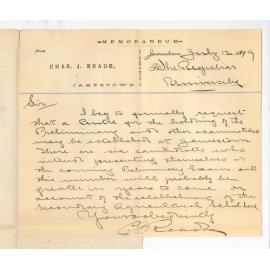 MEMORANDUM
From
CHAS. J. READE,
JAMESTOWN
Jamestown, July 12 1899
To The Registrar
University
Sir
I beg to formally request
that a Centre for the holding of the
Preliminary and other examinations
may be established at Jamestown
There are six candidates who
intend presenting themselves at
the coming Preliminary Exam and
this number will probably be
greater in years to come on
account of the establishing of the
Secondary Agricultural School here
Yours obediently
C J Reade